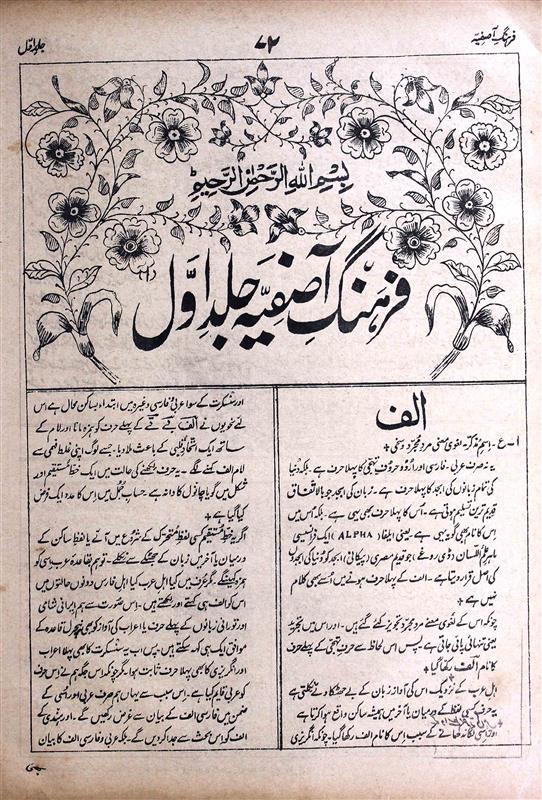 فرہنگِ آصفیہ
۷۲
جلد اوّل
بِسْمِ اللهِ الرَّحْمٰنِ الرَّحِيْمِ
فرہنگِ آصفیہ جلد اوّل
الف
ا - ع - اسم مذکر - لغوی معنی مرد مجرد و سخی +
یہ نہ صرف عربی - فارسی اور اُردُو حروفِ تہجّی کا پہلا حرف ہے - بلکہ دُنیا
کی تمام زبانوں کی ابجد کا پہلا حرف ہے - زبان کی ابجد جو بالاتفاق
قدیم ترین تسلیم ہوتی ہے - اُس کا پہلا حرف بھی یہی ہے - بلکہ اُس میں
اِس کا نام بھی گویہی ہے - یعنی ایلفا ALPHA) ایک فرانسیسی
ماہرِ علمُ اللّسان (ڈی روغے) جو قدیم مصری (ہیکانی) ابجد کو دُنیا کی ابجدوں
کی اصل قرار دیتا ہے - الف کے پہلا حرف ہونے میں اُسے بھی کلام
نہیں ہے +
چونکہ اس کے لغوی معنے مرد مجرّد تجویز کئے گئے ہیں - اور اس میں تجرید
یعنی تنہائی پائی جاتی ہے پس اس لحاظ سے حرفِ تہجّی کے پہلے حرف
کا نام الف رکھا گیا +
اہلِ عرب کے نزدیک اِس کی آواز زبان کے بے جھٹکا دئے نکلتی ہے
یہ حرف کسی لفظ کے درمیان یا آخر میں ہمیشہ ساکن واقع ہوا کرتا ہے
کے سبب اِس کا نام الف رکھا گیا - چونکہ انگریزی
اور سنسکرت کے سوا عربی فارسی وغیرہ میں ابتداء بساکن محال ہے اس
لئے نحویوں نے الف بے تے کے پہلے حرف کو ہمزہ مانا اور لام کے
ساتھ ایک اشتعار قلبی کے باعث ملا دیا - جسے لوگ اپنی غلط فہمی سے
لام الف کہنے لگے - یہ حرف لکھنے کی حالت میں ایک خطِ مستقیم اور
شکل میں گویا چانول کا دانہ ہے - حسابِ جُمل میں اِس کا عدد ایک فرض
کیا گیا ہے +
اگر یہ خطِ مستقیم کسی لفظ متحرّک کے شروع میں آئے یا لفظ ساکن کے
درمیان یا آخر میں زبان کے جھٹکے سے نکلے - تو ہم بقاعدۂ عرب اِسی کو
ہمزہ کہینگے مگر عرف میں کیا اہلِ عرب کیا اہلِ فارس دونوں حالتوں میں
اس کو الف ہی کہتے اور لکھتے ہیں - اِس صورت سے ہم ایرانی شامی
اور تورانی زبانوں کے پہلے حرف یا اعراب کی آواز کو بھی نیچرل قاعدہ کے
موافق ایک ہی کہہ سکتے ہیں - پس اب یہ سنسکرت کا بھی پہلا اعراب
اور انگریزی کا بھی پہلا حرف ثابت ہوا - مگر چونکہ اس جگہ ہم نے اِس حرف
کو عربی قایم کیا ہے - اِس سبب سے یہاں ہم صرف عربی اور اُسی کے
ضمن میں فارسی الف کے بیان سے غرض رکھیں گے - اور ہندی کے
الف کو اِس بحث سے جدا کر دیں گے - بلکہ عربی و فارسی الف کا بیان